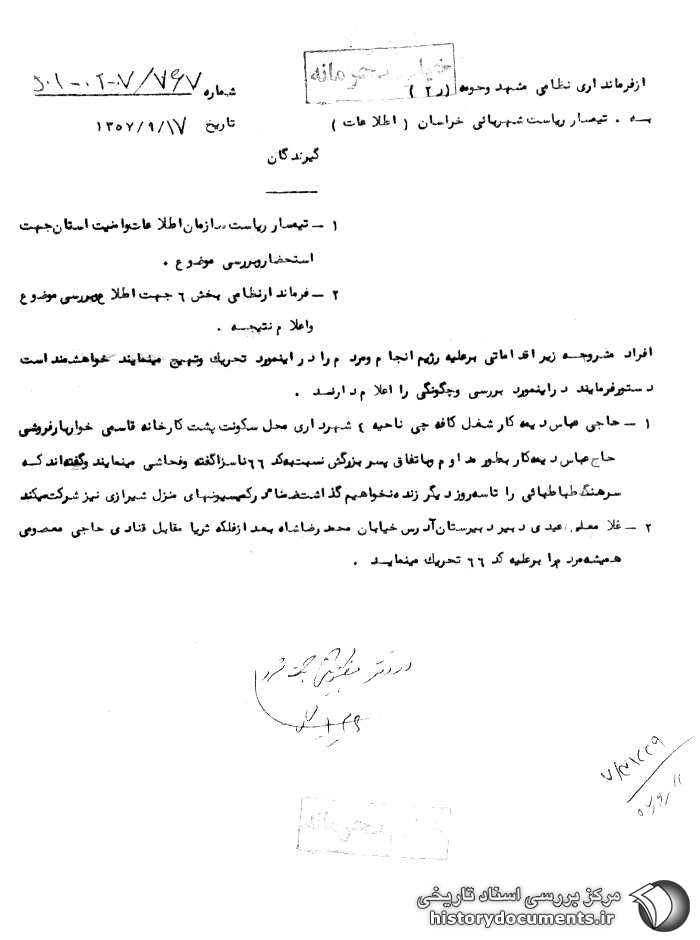 خیلی محرمانه
از فرمانداری نظامی مشهد و حومه (ر۲)
شماره ۷۶۷/۷-۰۲-۰۱-۵
به . تیمسار ریاست شهربانی خراسان (اطلاعات)
تاریخ ۱۳۵۷/۹/۱۷
گیرندگان
۱ – تیمسار ریاست سازمان اطلاعات و امنیت استان جهت
استحضار و بررسی موضوع .
۲ – فرماندار نظامی بخش ۶ جهت اطلاع و بررسی موضوع
و اعلام نتیجه .
افراد مشروحه زیر اقداماتی بر علیه رژیم انجام و مردم را در اینمورد تحریک و تهییج مینمایند خواهشمند است
دستور فرمایند در اینمورد بررسی و چگونگی را اعلام دارند .
۱ – حاجی عباس دیمه کار شغل کافه چی ناحیه ۴ شهرداری محل سکونت پشت کارخانه قاسمی خواربار فروشی
حاج عباس دیمه کار بطور مداوم و باتفاق پسر بزرگش نسبت به کد ۶۶ ناسزا گفته و فحاشی مینمایند و گفته اند که
سرهنگ طباطبائی را تا سه روز دیگر زنده نخواهیم گذاشت ضمنا در کمیسیونهای منزل شیرازی نیز شرکت میکند
۲ – غلامعلی عیدی دبیر دبیرستان آدرس خیابان محمد رضا شاه بعد از فلکه ثریا مقابل قنادی حاجی معصومی
همیشه مردم را بر علیه کد ۶۶ تحریک مینماید .
مرکز بررسی اسناد تاریخی
historydocuments.ir